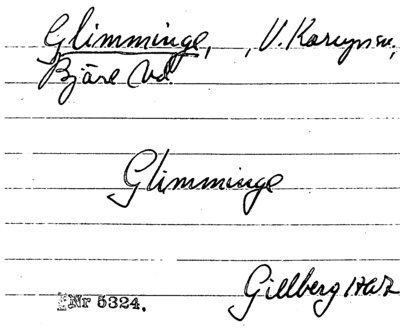 Glimminge, , V. Karups sn,
Bjäre hd.
Glimminge
Gillberg
Nr 5324.